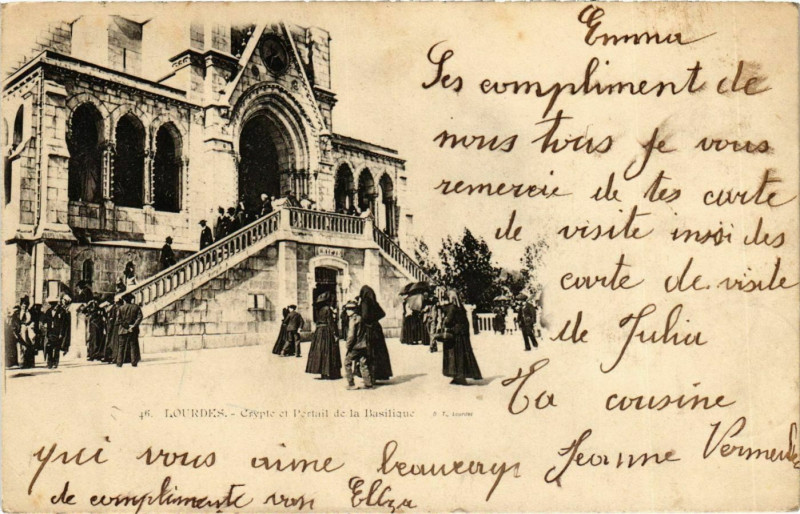 Emma
Les compliment de
nous tous je vous
remercie de tes carte
de visite insoi des
carte de visite
de Julia
Ta cousine
46. LOURDES. - Crypte et Portail de la Basilique
qui vous aime beaucoup Jeanne
de complimente van Eliza